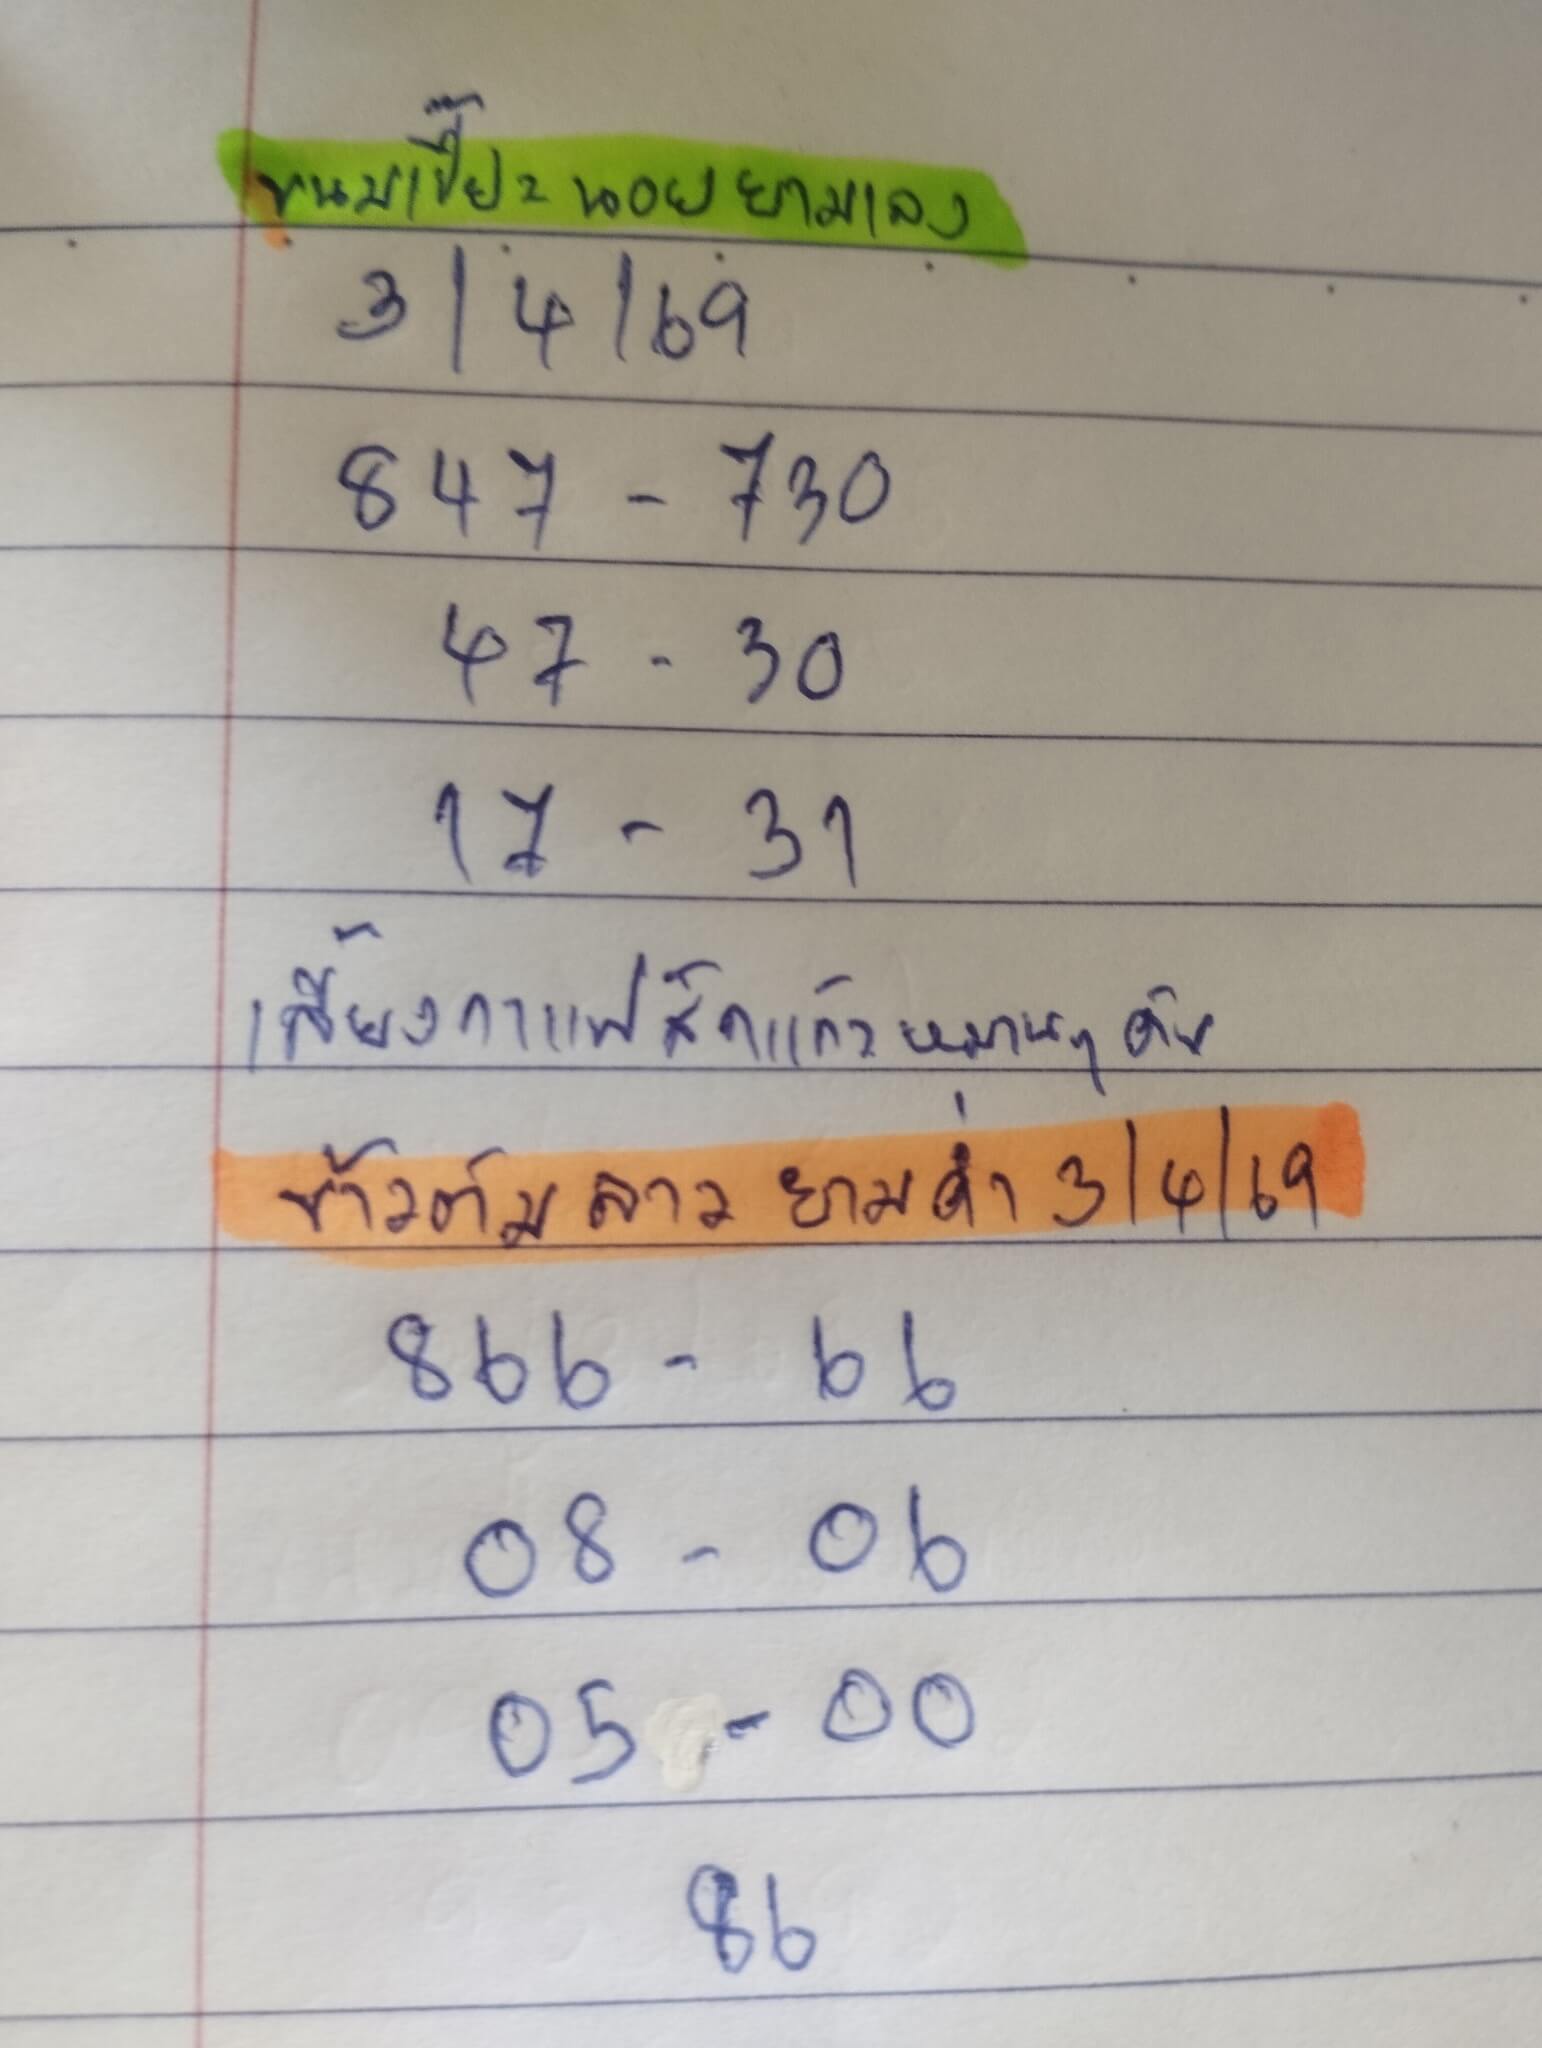 ขนมเปี๊ยะ นอย ยามแลง
3/4/69
847 - 730
47 - 30
17 - 31
เลี้ยงกาแฟสักแก้วหมานๆ ครับ
ข้าวต้ม ลาว ยามค่ำ 3/4/69
866 - 66
08 - 06
05 - 00
86